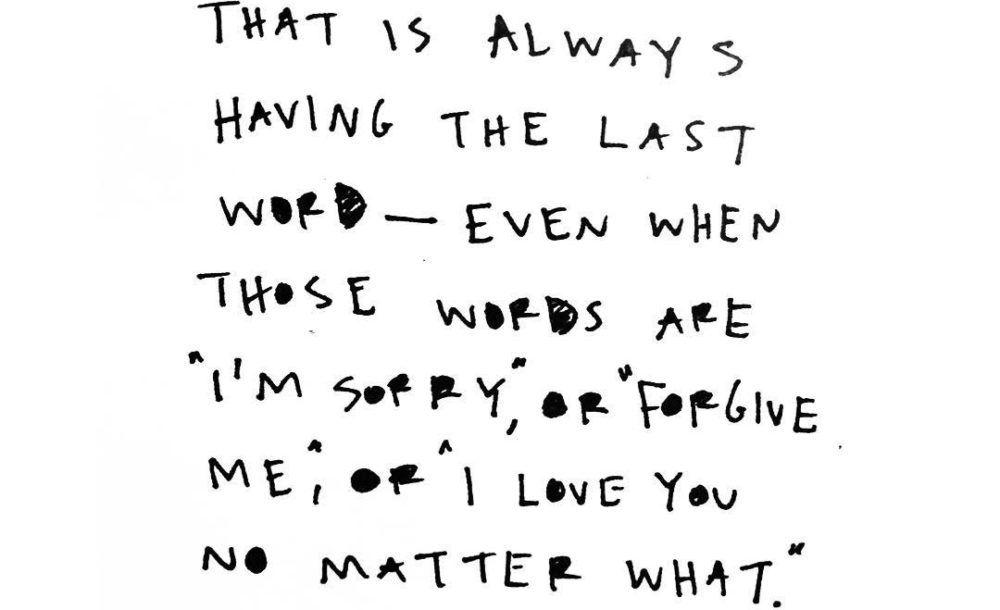 THAT IS ALWAYS
HAVING THE LAST
WORD — EVEN WHEN
THOSE WORDS ARE
"I'M SORRY," OR "FORGIVE
ME", OR "I LOVE YOU
NO MATTER WHAT."